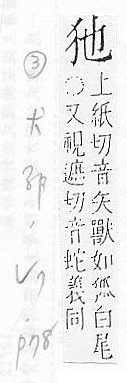 狏
上紙切音矢獸如狐白尾
○又視遮切音蛇義同
③犬部
p78